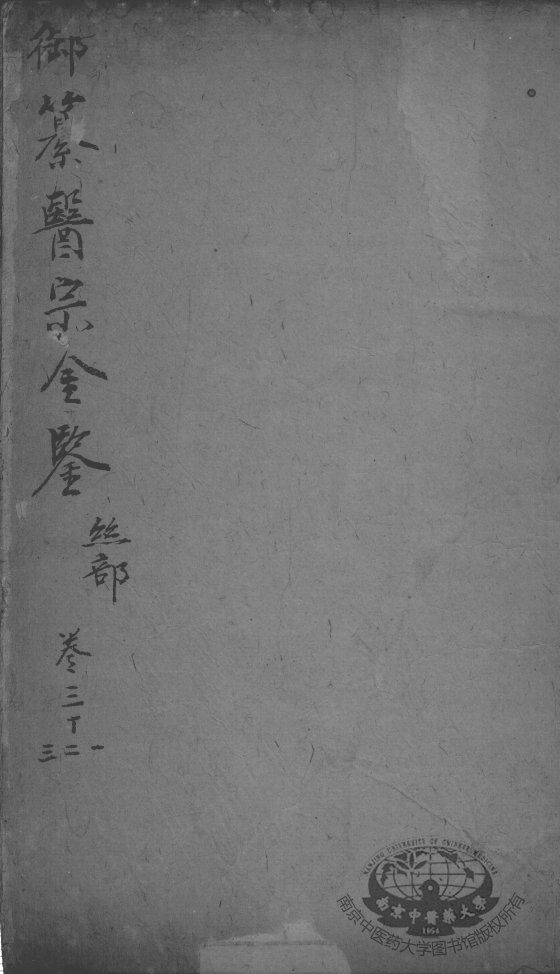 御纂醫宗金鑒
絲部
卷三丁
一二三
NANJING UNIVERSITY OF CHINESE MEDICINE
南京中醫藥大學
1954
南京中医药大学图书馆版权所有